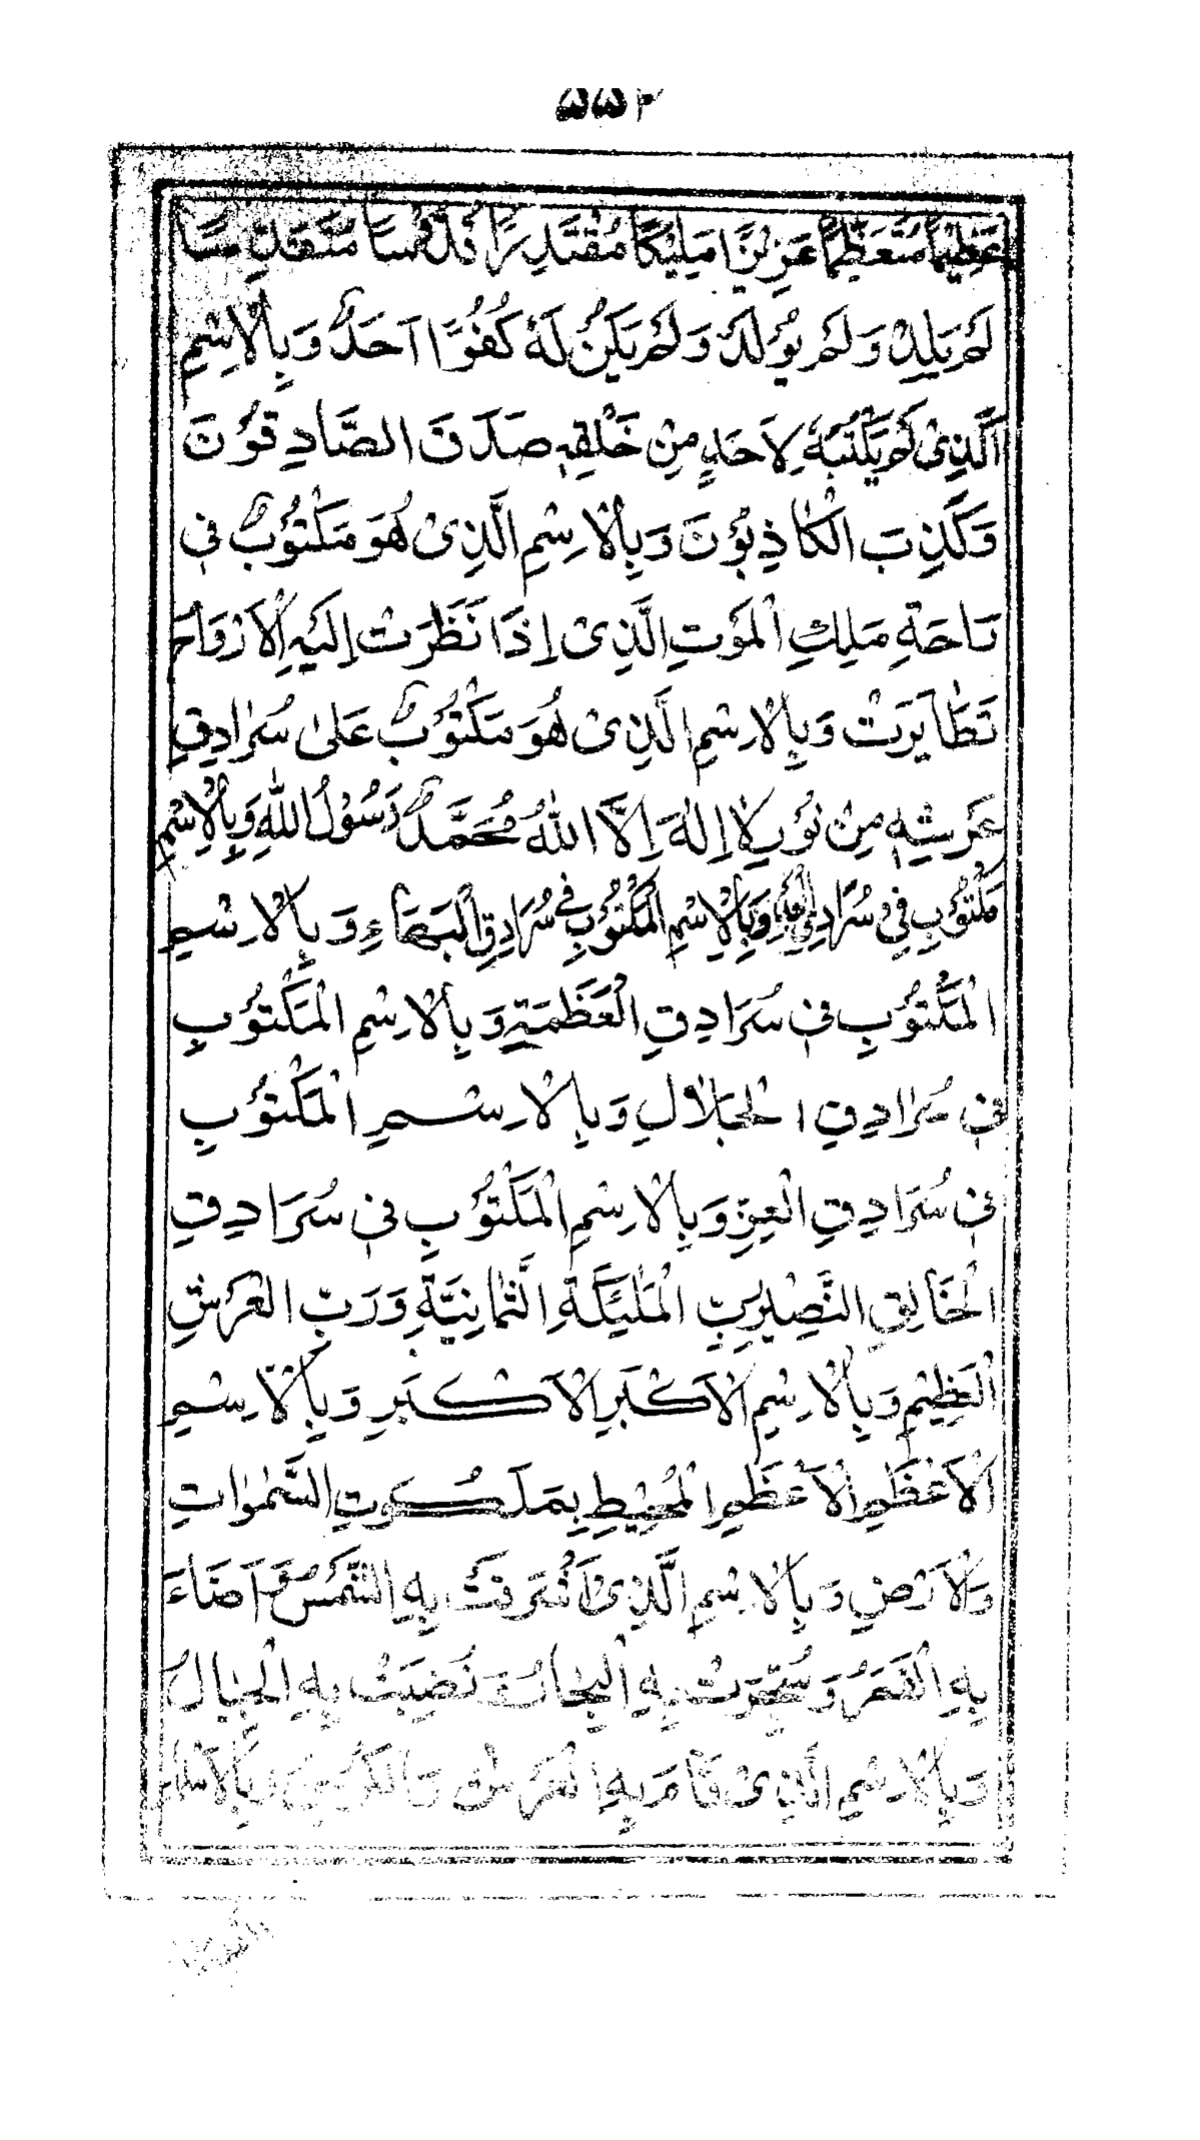 ۵۵۲
عَظِيْمًا مُتَعَظِّمًا عَزِيْزًا مَلِيْكًا مُقْتَدِرًا قُدُّوْسًا مُتَقَدِّسًا
لَمْ يَلِدْ وَلَمْ يُوْلَدْ وَلَمْ يَكُنْ لَهٗ كُفُوًا اَحَدٌ وَبِالْاِسْمِ
الَّذِىْ لَمْ يَكْتُبْهُ لِاَحَدٍ مِنْ خَلْقِهٖ صَدَقَ الصَّادِقُوْنَ
وَكَذِبَ الْكَاذِبُوْنَ وَبِالْاِسْمِ الَّذِىْ هُوَ مَكْتُوْبٌ فِىْ
رَاحَةِ مَلِكِ الْمَوْتِ الَّذِىْ اِذَا نَظَرَتْ اِلَيْهِ الْاَرْوَاحُ
تَطَايَرَتْ وَبِالْاِسْمِ الَّذِىْ هُوَ مَكْتُوْبٌ عَلىٰ سُرَادِقِ
عَرْشِهٖ مِنْ نُوْرٍ لَا اِلٰهَ اِلَّا اللهُ مُحَمَّدٌ رَسُوْلُ اللهِ وَبِالْاِسْمِ
مَكْتُوْبِ فِىْ سُرَادِقِ وَبِالْاِسْمِ الْمَكْتُوْبِ فِىْ سُرَادِقِ الْبَهَاءِ وَبِالْاِسْمِ
الْمَكْتُوْبِ فِىْ سُرَادِقِ الْعَظَمَةِ وَبِالْاِسْمِ الْمَكْتُوْبِ
فِىْ سُرَادِقِ الْجَلَالِ وَبِالْاِسْمِ الْمَكْتُوْبِ
فِىْ سُرَادِقِ الْعِزِّ وَبِالْاِسْمِ الْمَكْتُوْبِ فِىْ سُرَادِقِ
الْخَالِقِ النَّصِيْرِ رَبِّ الْمَلٰئِكَةِ الثَّمَانِيَّةِ وَرَبِّ الْعَرْشِ
الْعَظِيْمِ وَبِالْاِسْمِ الْاَكْبَرِ الْاَكْبَرِ وَبِالْاِسْمِ
الْاَعْظَمِ الْاَعْظَمِ الْمُحِيْطِ بِمَلَكُوتِ السَّمٰوٰاتِ
وَالْاَرْضِ وَبِالْاِسْمِ الَّذِىْ اَشْرَقَتْ بِهِ الشَّمْسُ وَ اَضَاءَ
بِهِ الْقَمَرُ وَسُجِّرَتْ بِهِ الْبِحَارُ وَ نُصِبَتْ بِهِ الْجِبَالُ
وَبِالْاِسْمِ الَّذِىْ قَامَ بِهِ الْعَرْشُ وَالْكُرْسِىُّ وَبِالْاَسْمَاءِ